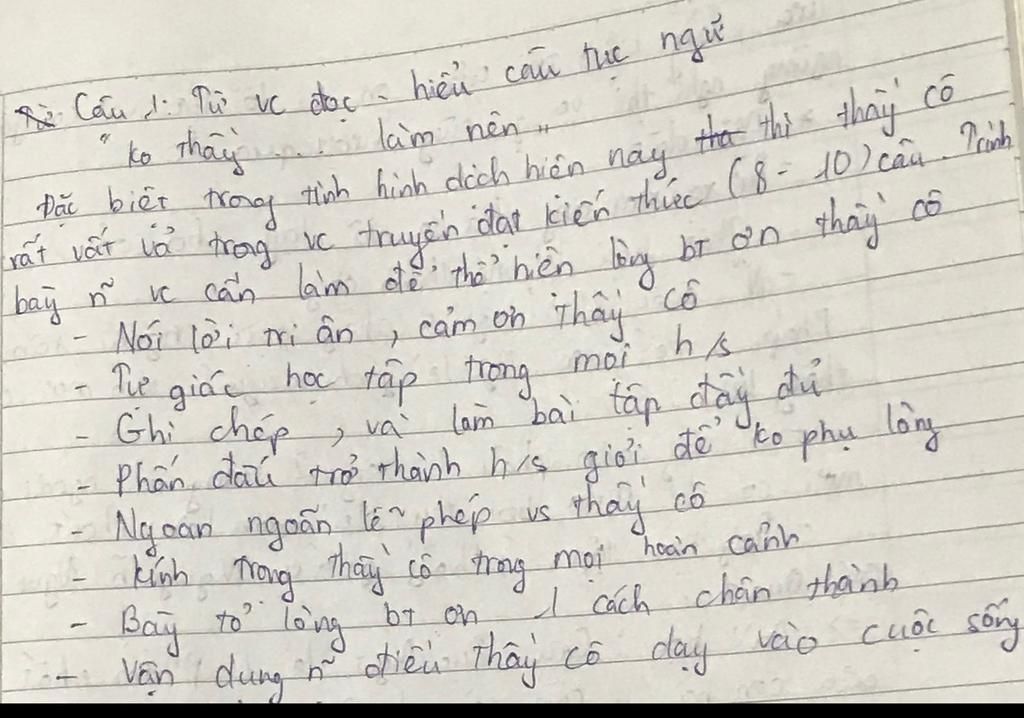 Câu 1: Từ vc đọc - hiểu câu tục ngữ
"ko thầy .... làm nên"
Đặc biệt trong tình hình dịch hiện nay thì thầy cô
rất vất vả trong vc truyền đạt kiến thức (8 - 10) câu. Trình
bày n~ vc cần làm để thể hiện lòng bt ơn thầy cô
- Nói lời tri ân, cảm ơn thầy cô
- Tự giác học tập trong mọi h/s
- Ghi chép, và làm bài tập đầy đủ
- Phấn đấu trở thành h/s giỏi để ko phụ lòng
- Ngoan ngoãn lễ phép vs thầy cô
- kính trọng thầy cô trong mọi hoàn cảnh
- Bày tỏ lòng bt ơn 1 cách chân thành
- Vận dụng n~ điều thầy cô dạy vào cuộc sống